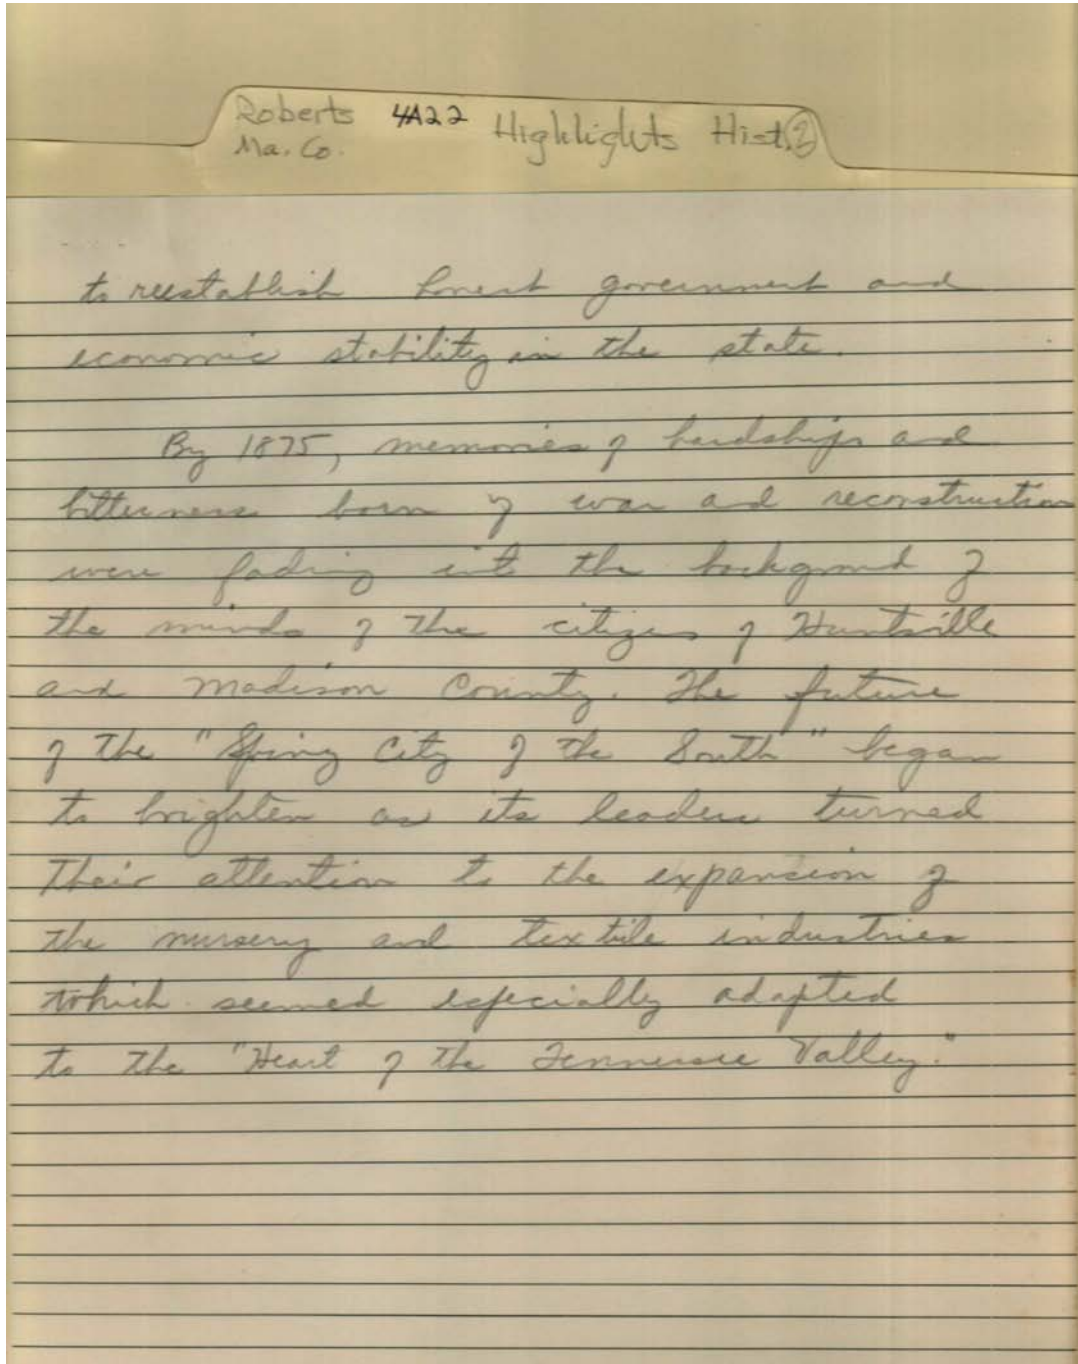 Roberts 4A22 Highlights Hist. 2
Ma. Co.
to reestablish honest government and
economic stability in the state.
By 1875, memories of hardships and
bitterness born of war and reconstruction
were fading into the background of
the minds of the citizens of Huntsville
and Madison County. The future
of the "Spring City of the South" began
to brighten as its leaders turned
their attention to the expansion of
the nursery and textile industries
which seemed especially adapted
to the "Heart of the Tennessee Valley."